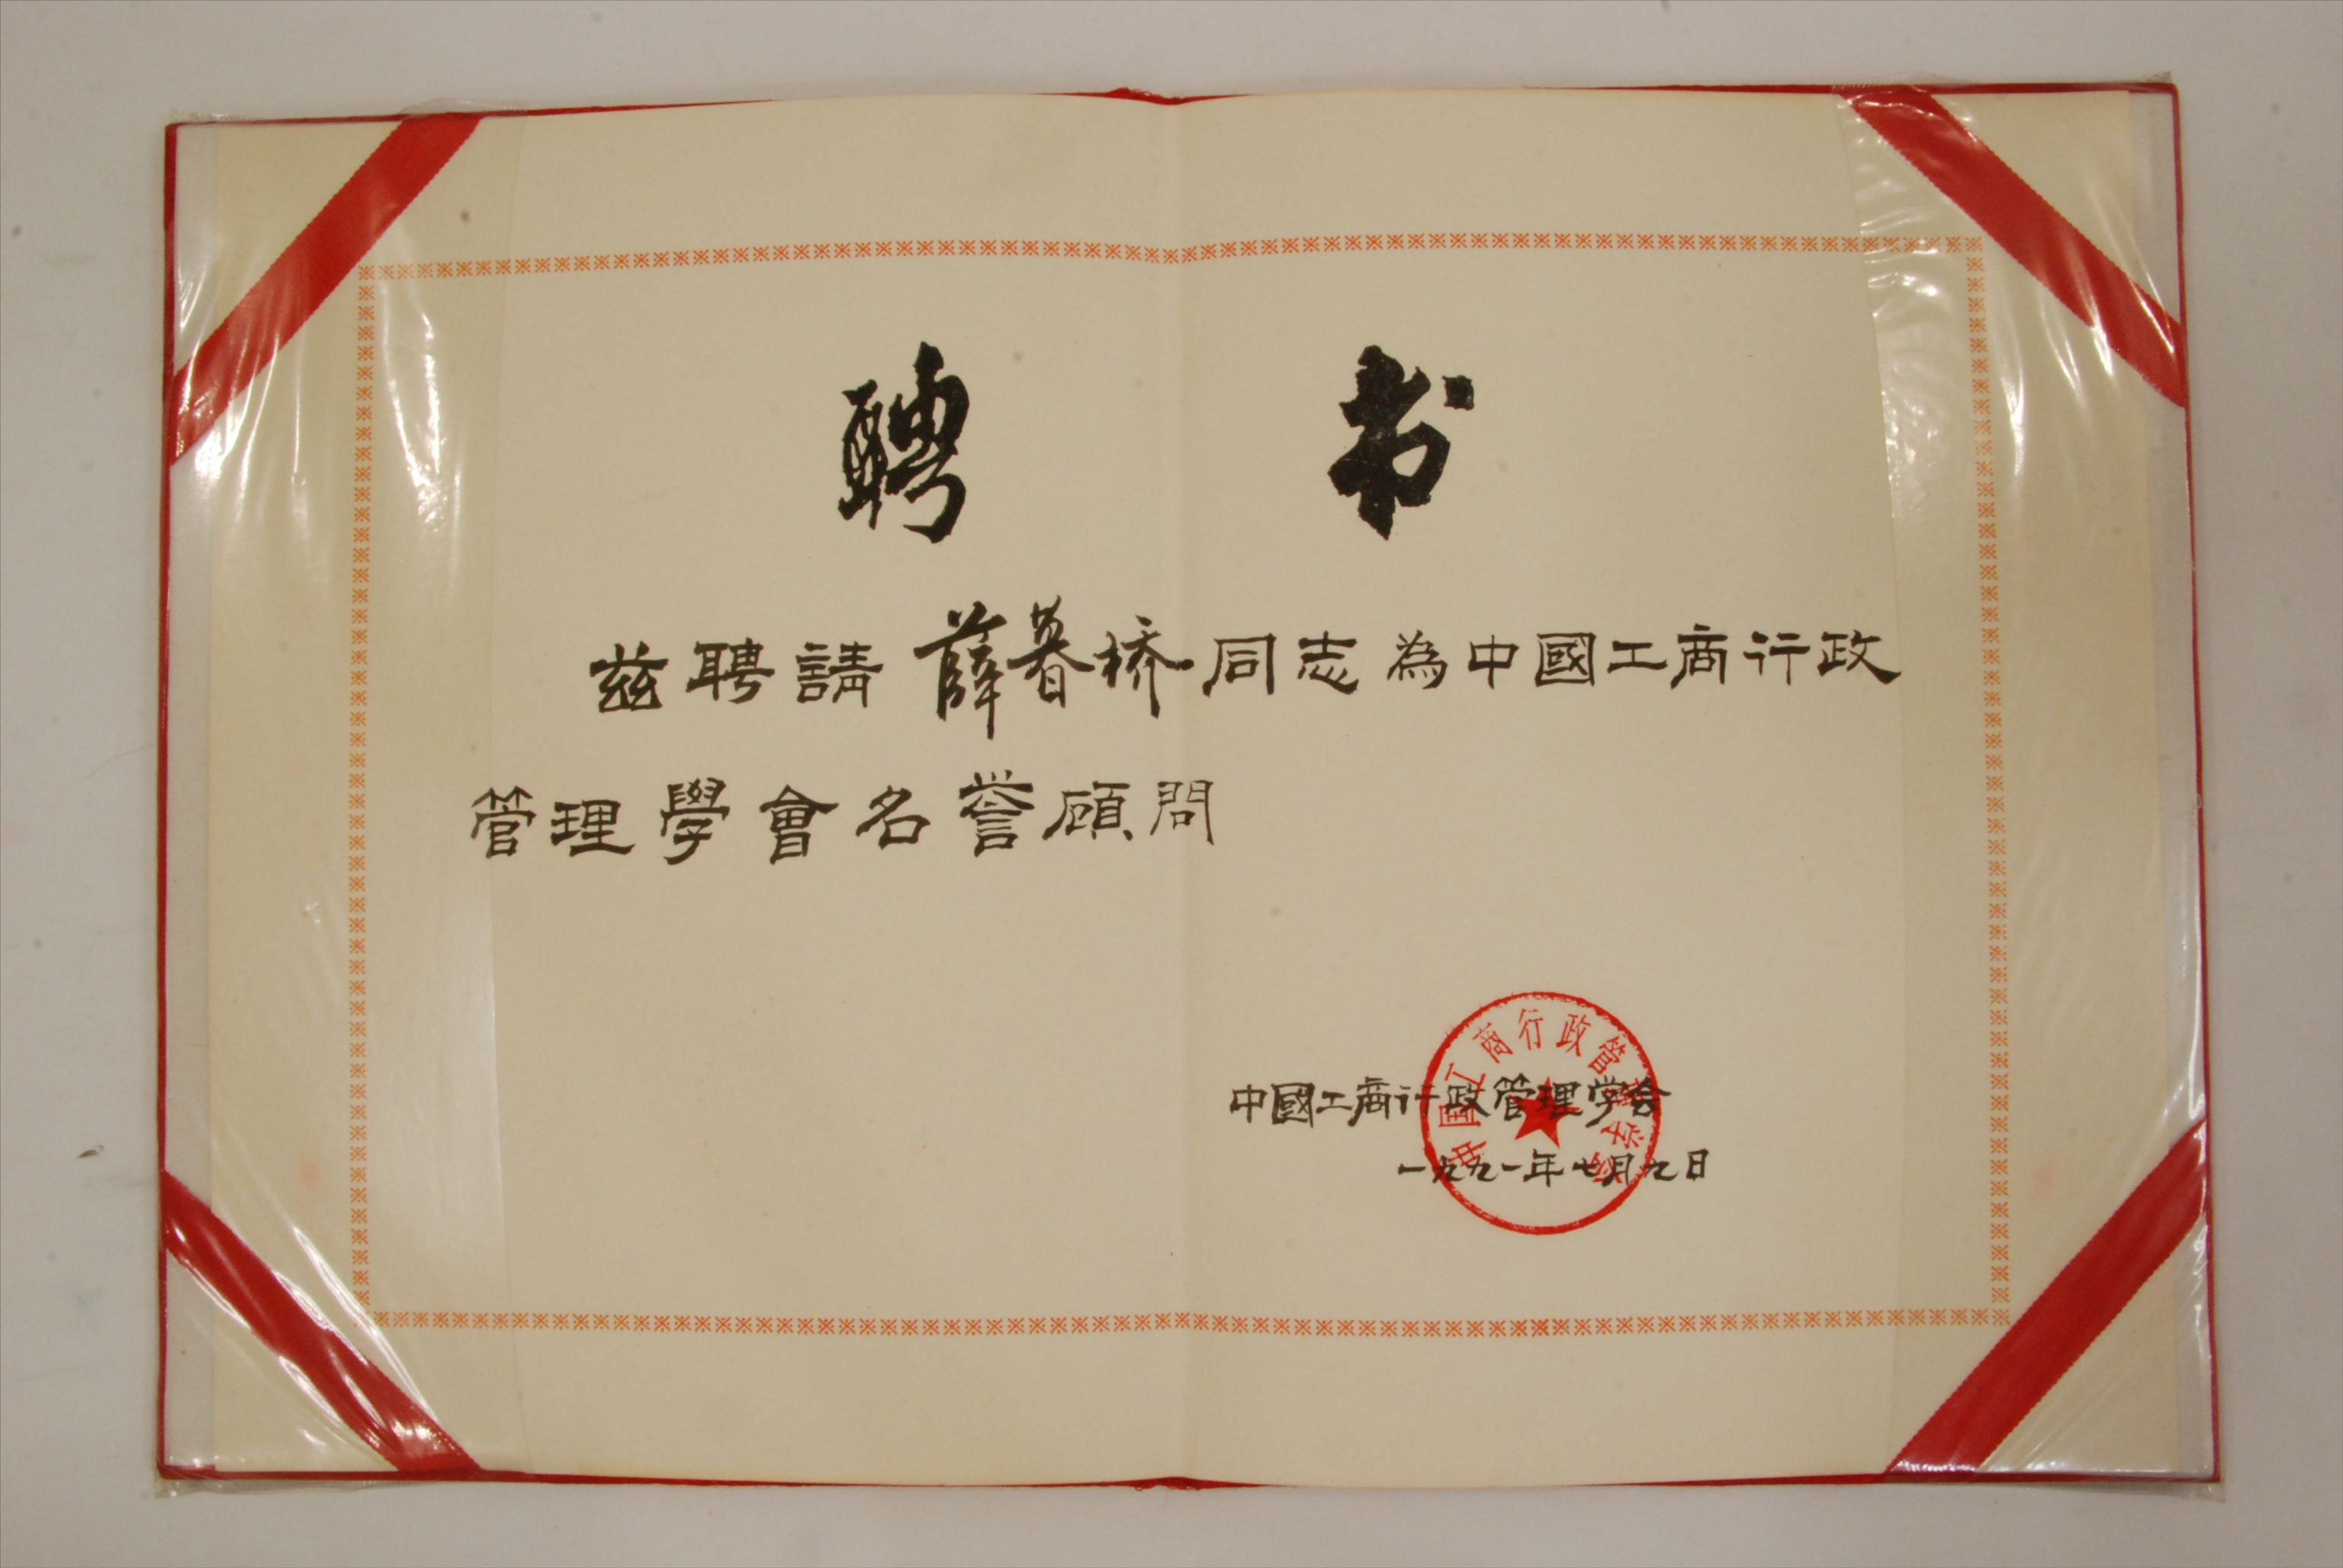 聘书
兹聘請薛暮桥同志為中國工商行政
管理學會名誉顧問
中國工商行政管理学会
一九九一年七月九日
中国工商行政管理学会